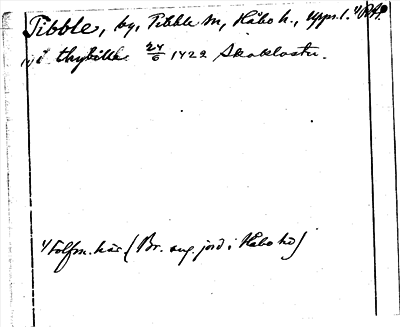 Tibble, by, Tibble sn, Håbo h., Upps. l. 1/ RA.
(i) i thybille 24/6 1422 Skokloster.
1/ Folfm. här (Br. ang. jord i Håbo hd)